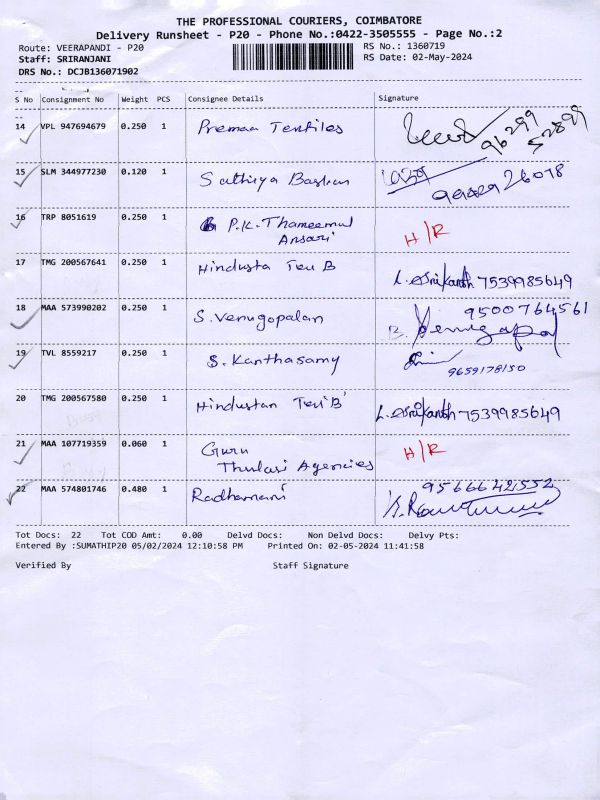 THE PROFESSIONAL COURIERS, COIMBATORE
Delivery Runsheet - P20 - Phone No.:0422-3505555 - Page No.:2
Route: VEERAPANDI - P20 RS No.: 1360719
Staff: SRIRANJANI RS Date: 02-May-2024
DRS No.: DCJB136071902
S No Consignment No Weight PCS Consignee Details Signature
14 VPL 947694679 0.250 1 Premaa Textiles 96299
52899
15 SLM 344977230 0.120 1 Sathiya Baskan 9942926078
16 TRP 8051619 0.250 1 P.K. Thameemul
Ansari H/R
17 TMG 200567641 0.250 1 Hindusta Texi B L. Srikanth 7539985649
18 MAA 573990202 0.250 1 S. Venugopalan 9500764561
B. Venugopal
19 TVL 8559217 0.250 1 S. Kanthasamy
9659178150
20 TMG 200567580 0.250 1 Hindustan Texi 'B' L. Srikanth 7539985649
21 MAA 107719359 0.060 1 Guru
Thulasi Agencies H/R
22 MAA 574801746 0.480 1 Radhamani 9566642552
Tot Docs: 22 Tot COD Amt: 0.00 Delvd Docs: Non Delvd Docs: Delvy Pts:
Entered By :SUMATHIP20 05/02/2024 12:10:58 PM Printed On: 02-05-2024 11:41:58
Verified By Staff Signature